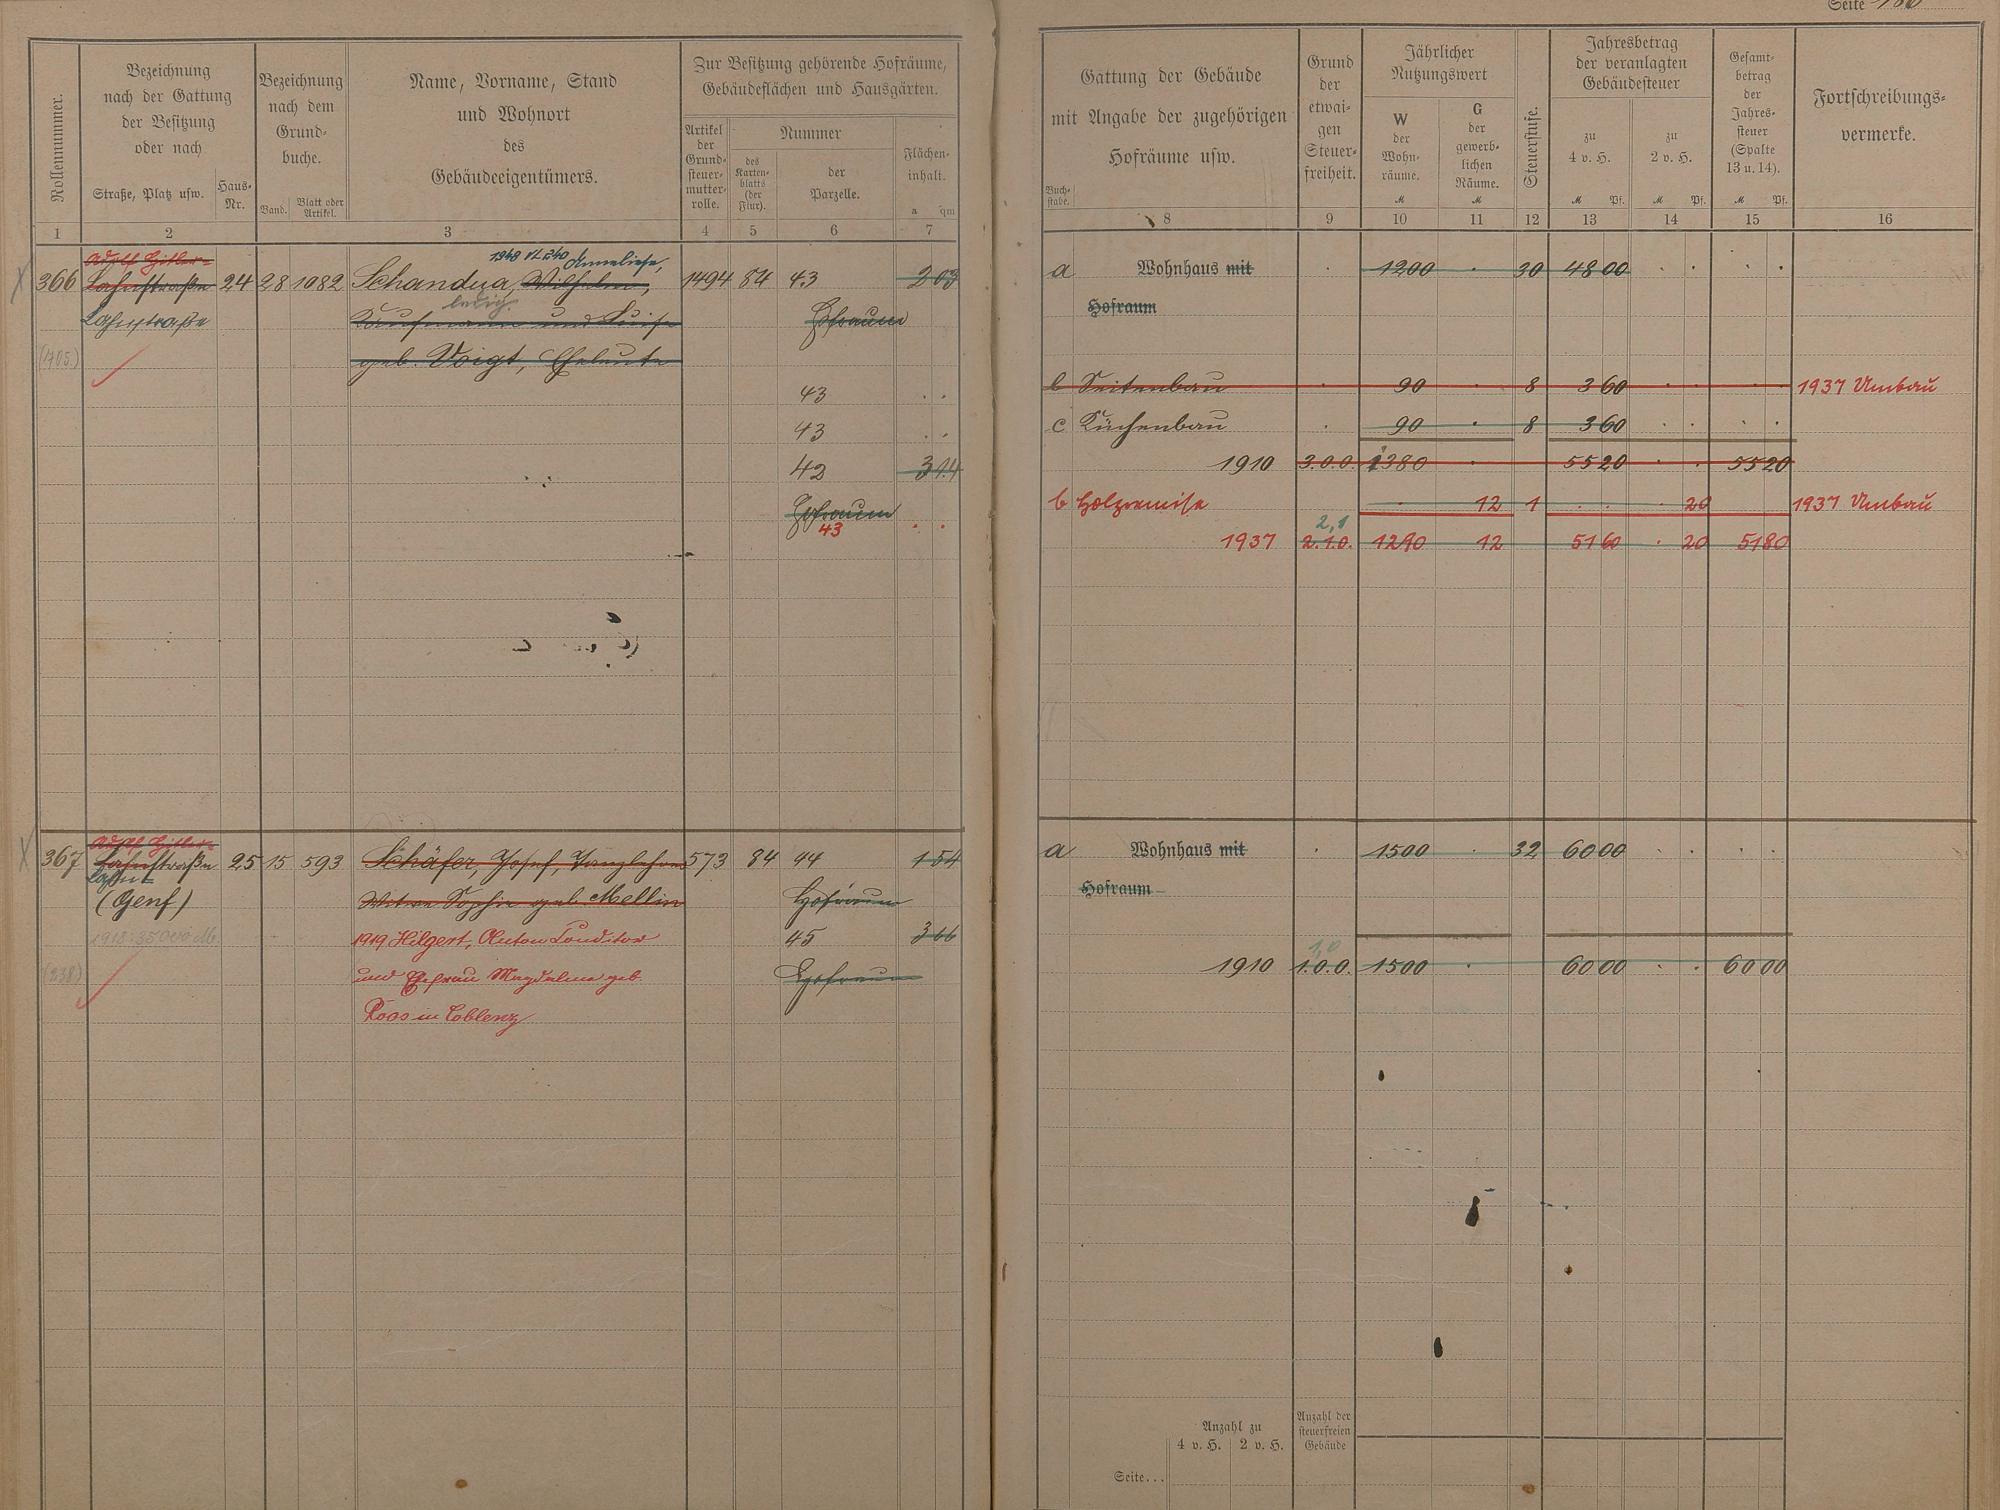 Seite
Rollennummer.
Bezeichnung
nach der Gattung
der Besitzung
oder nach
Straße, Platz usw.
Haus-
Nr.
Bezeichnung
nach dem
Grund-
buche.
Band.
Blatt oder
Artikel.
Name, Vorname, Stand
und Wohnort
des
Gebäudeeigentümers.
Zur Besitzung gehörende Hofräume,
Gebäudeflächen und Hausgärten.
Artikel
der
Grund-
steuer-
mutter-
rolle.
Nummer
des
Karten-
blatts
(der
Flur).
der
Parzelle.
Flächen-
inhalt.
a qm
1 2 3 4 5 6 7
Adolf Hitler-
1948 Anneliese,
366 Lahnstraße 24 28 1082 Schandua, Wilhelm, 1494 84 43 203
ledig.
Lahnstraße Kaufmann und Luise Hofraum
(1705) geb. Voigt, Eheleute
43
43
42 314
Hofraum
43
Adolf Hitler-
367 Lahnstraße 25 15 593 Schäfer, Josef, Tanzlehrer 573 84 44 154
Lahnst
(Genf) Witwe Sophie geb. Mellin Hofraum
1918: 35000 M. 1919 Hilgert, Anton Conditor 45 366
(238) und Ehefrau Magdalena geb. Hofraum
Roos in Coblenz
Gattung der Gebäude
mit Angabe der zugehörigen
Hofräume usw.
Buch-
stabe.
Grund
der
etwai-
gen
Steuer-
freiheit.
Jährlicher
Nutzungswert
W
der
Wohn-
räume.
M
G
der
gewerb-
lichen
Räume.
M
Steuerstufe.
Jahresbetrag
der veranlagten
Gebäudesteuer
zu
4 v. H.
M Pf.
zu
2 v. H.
M Pf.
Gesamt-
betrag
der
Jahres-
steuer
(Spalte
13 u. 14).
M Pf.
Fortschreibungs-
vermerke.
8 9 10 11 12 13 14 15 16
a Wohnhaus mit 1200 30 48 00
Hofraum
b Seitenbau 90 8 3 60 1937 Umbau
c Küchenbau 90 8 3 60
1910 3.0.0. 1380 55 20 55 20
b Holzremise 12 1 20 1937 Umbau
2,1
1937 2.1.0. 1290 12 51 60 20 51 80
a Wohnhaus mit 1500 32 60 00
Hofraum
1,0
1910 1.0.0. 1500 60 00 60 00
Anzahl zu
4 v. H. 2 v. H.
Anzahl der
steuerfreien
Gebäude
Seite...